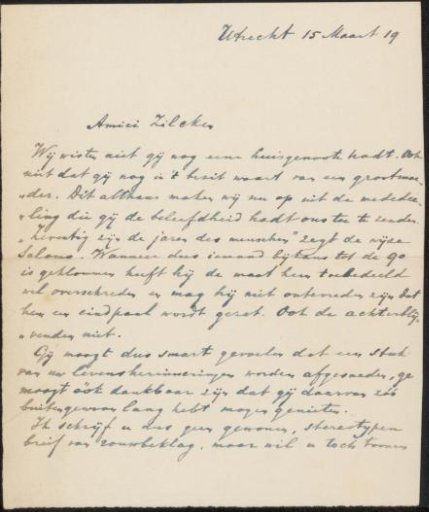 Utrecht 15 Maart 19
Amici Zilcken
Wij wisten niet gij nog eene huisgenoote hadt. Ook
niet dat gij nog in 't bezit waart van een grootmoe-
"der. Dit althans maken wij nu op uit de mededee-
"ling die gij de beleefdheid hadt ons toe te zenden.
"Zeventig zijn de jaren des menschen" zegt de wijze
Salomo. Wanneer dus iemand bijkans tot de 90
is geklommen heeft hij de maat hem toebedeeld
wel overschreden en mag hij niet ontevreden zijn dat
hem een eindpaal wordt gezet. Ook de achterblij-
"venden niet.
Gij moogt dus smart gevoelen dat een stuk
van uw levensherinneringen worden afgesneden, ge
moogt óók dankbaar zijn dat gij daarvan zóó
buitengewoon lang hebt mogen genieten.
Ik schrijf u dus geen gewonen, stereotypen
brief van rouwbeklag, maar wil u toch toonen